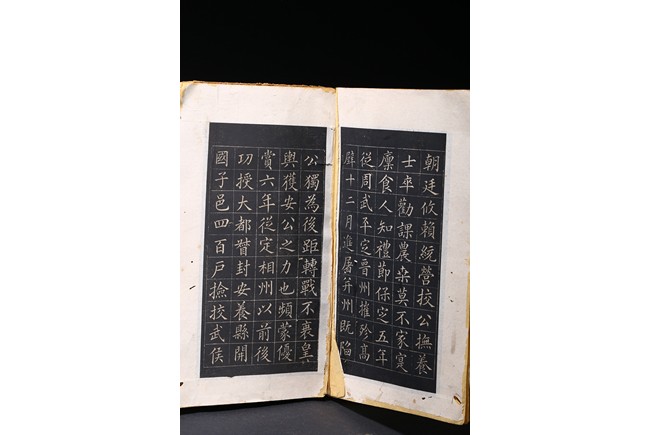 朝廷攸賴統營挍公撫養
士卒勸課農桒莫不家寔
廪食人知禮節保定五年
從周武平定晉州摧殄高
壁十二月進屠并州既陷
公獨為後距轉戰不衰皇
輿獲安公之力也頻蒙優
賞六年從定相州以前後
功授大都督封安養縣開
國子邑四百戶撿挍武侯